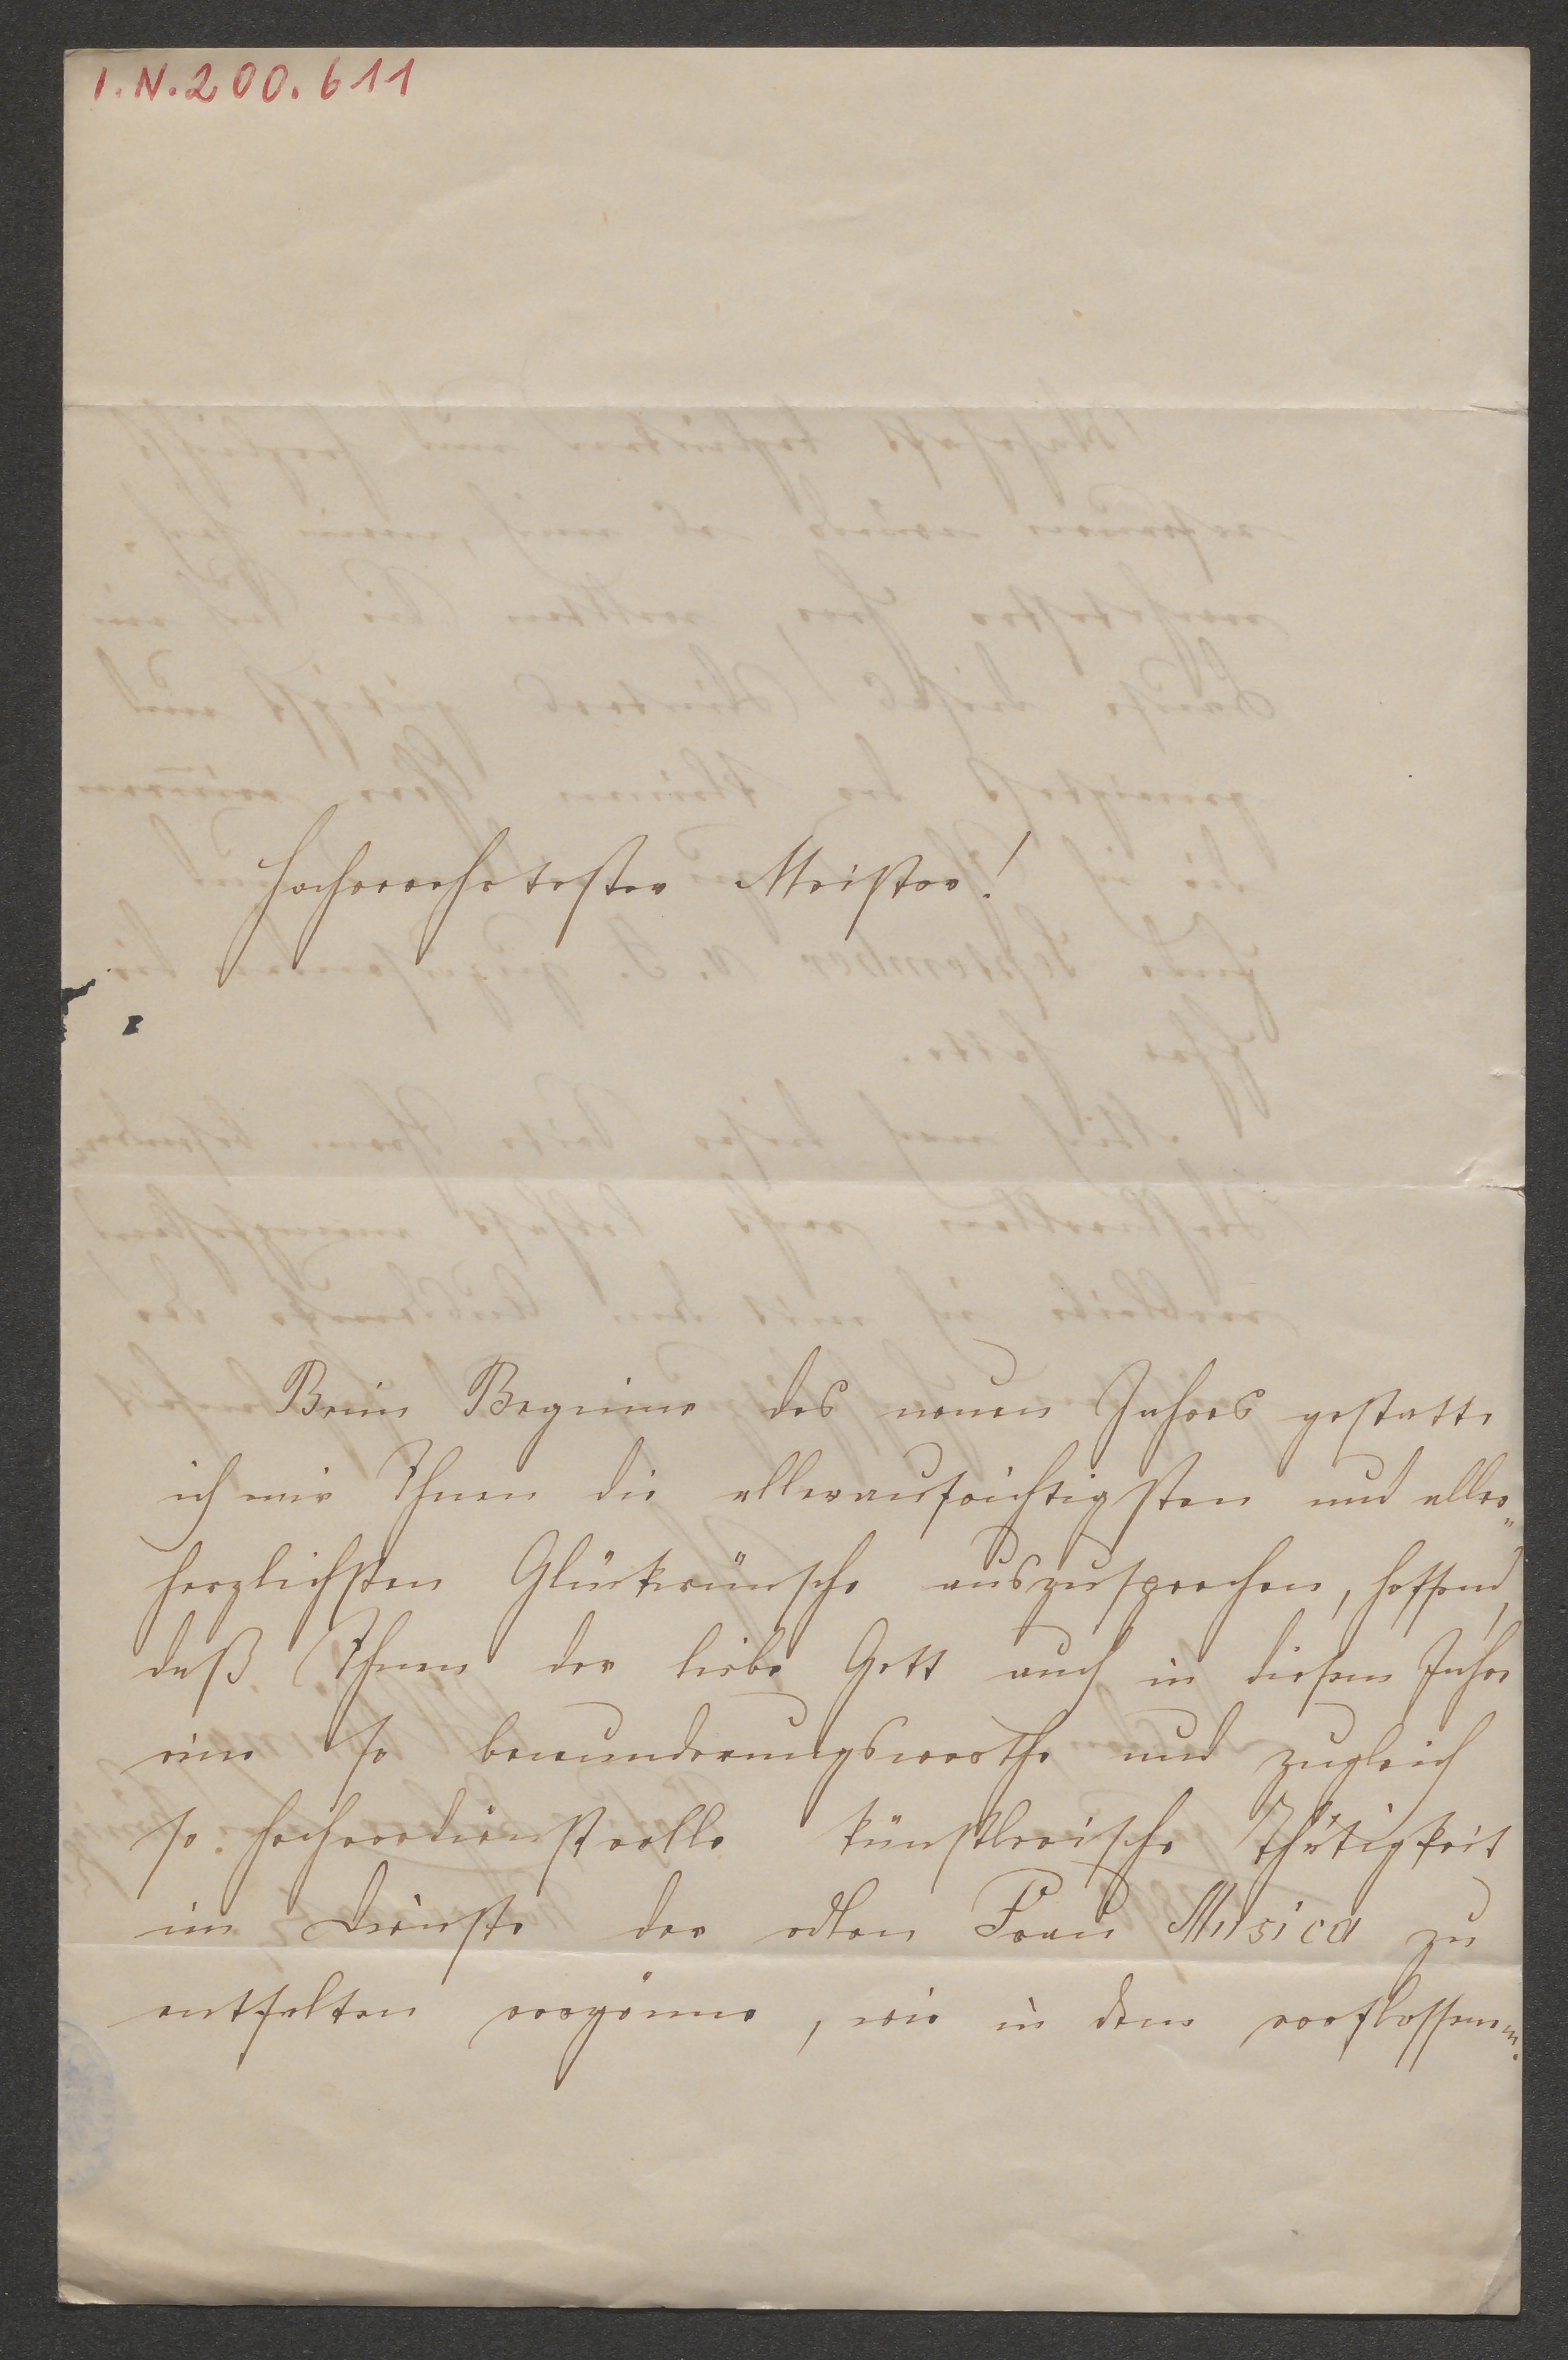 I.N.200.611
Hochverehrtester Meister!
Beim Beginne des neuen Jahres gestatte
ich mir Ihnen die alleraufrichtigsten und aller„
herzlichsten Glückwünsche auszusprechen, hoffend,
daß Ihnen der liebe Gott auch in diesem Jahre
eine so bewunderungswerthe und zugleich
so hochverdienstvolle künstlerische Thätigkeit
im Dienste der edlen Frau Musica zu
entfalten vergönne, wie in dem verflossenen.